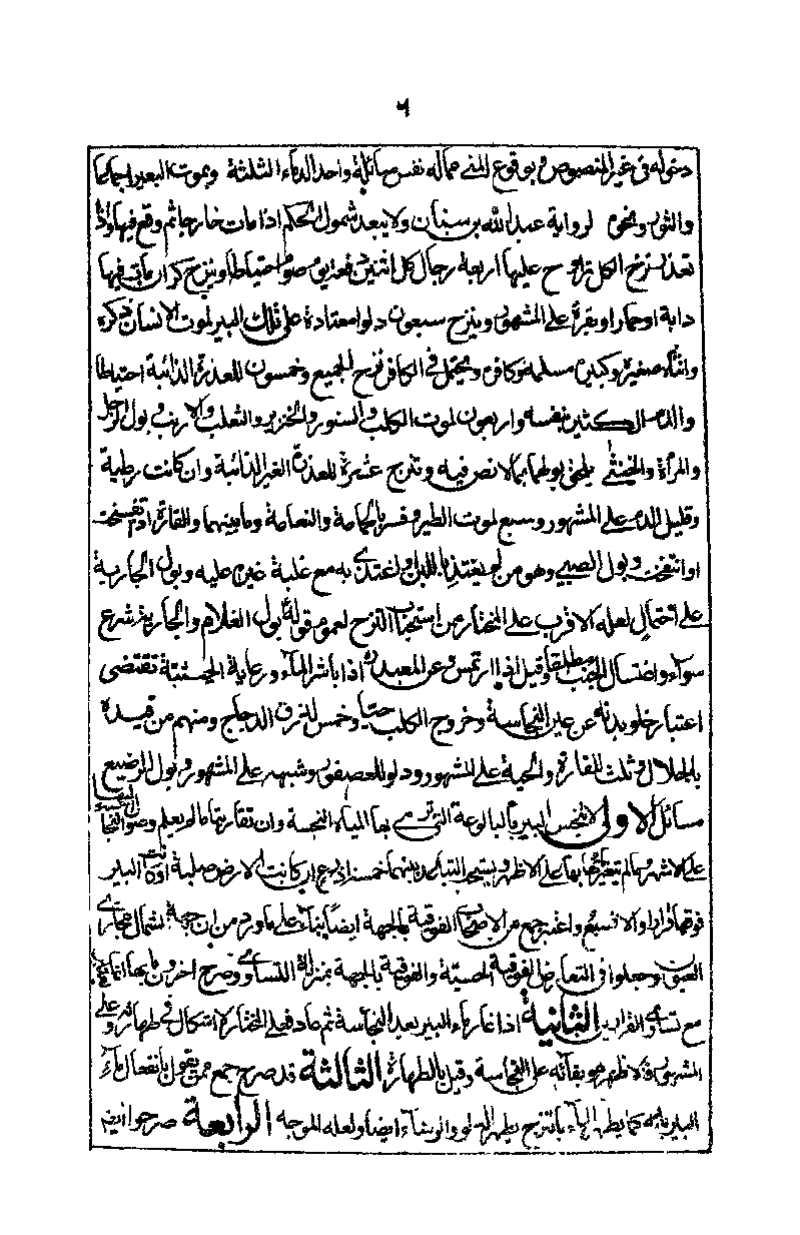 ٦
دخوله في غير المنصوص وبوقوع المني مما له نفس سائلة واحد الدماء الثلثة وبموت البعير اجماعا
والثور ونحوه لرواية عبد الله بن سنان ولا يبعد شمول الحكم اذا مات خارجا ثم وقع فيها واذا
تعذر نزح الكل تراوح عليها اربعة رجال كل اثنين دفعة يوم صوم احتياطا وينزح كر ان مات فيها
دابة او حمار او بقرة على المشهور وينزح سبعون دلوا معتادة على تلك البير لموت الانسان ذكره
وانثاه صغيره وكبيره مسلمه وكافره ويحتمل في الكافر نزح الجميع وخمسون للعذرة الذائبة احتياطا
والدم الكثير بنفسه واربعون لموت الكلب والسنور والخنزير والثعلب والارنب وبول الرجل
والمرأة والخنثى يلحق بولهما بما لا نص فيه وتنزح عشرة للعذرة الغير الذائبة وان كانت رطبة
وقليل الدم على المشهور وسبع لموت الطير وفسر بالحمامة والنعامة وما بينهما والفارة اذا تفسخت
او انتفخت وبول الصبي وهو من لم يغتذ باللبن او اغتذى به مع غلبة غيره عليه وبول الجارية
على احتمال لعله الاقرب على المختار من استحباب النزح لعموم قوله بول الغلام والجارية شرع
سواء واغتسال الجنب مطلقا وقيل اذا ارتمس وعن المعبد اذا باشر الماء ورعاية الحيثية تقتضي
اعتبار خلو بدنه عن عين النجاسة وخروج الكلب حيا وخمس لذرق الدجاج ومنهم من قيده
بالجلال وثلث للفارة والحية على المشهور ودلو للعصفور وشبهه على المشهور وبول الرضيع
مسائل الاولى لا تنجس البير بالبالوعة التي ترمى بها المياه النجسة وان تقاربتا ما لم يعلم وصول النجاسة اليها
على الاشهر وما لم يتغير بها على الاظهر ويستحب التباعد بينهما خمسة اذرع ان كانت الارض صلبة او كانت البير
فوقها قرارا والا فسبع واعتبر جمع من الاصحاب الفوقية بالجهة ايضا بناء على ما ورد من ان جهة الشمال مجاري
العيون وجعلوا في التعارض الفوقية الحسية والفوقية بالجهة بمنزلة التساوي وصرح اخرون
مع تساوي القرارين الثانية اذا غار ماء البير بعد النجاسة ثم عاد فعلى المختار لا اشكال في طهارته وعلى
المشهور فالاظهر هو بقائه على النجاسة وقيل بالطهارة الثالثة قد صرح جمع ممن يقول بانفعال ماء
البير بانه كما يطهر الماء بالنزح يطهر الدلو والرشاء ايضا ولعله الموجه الرابعة صرحوا ايضا